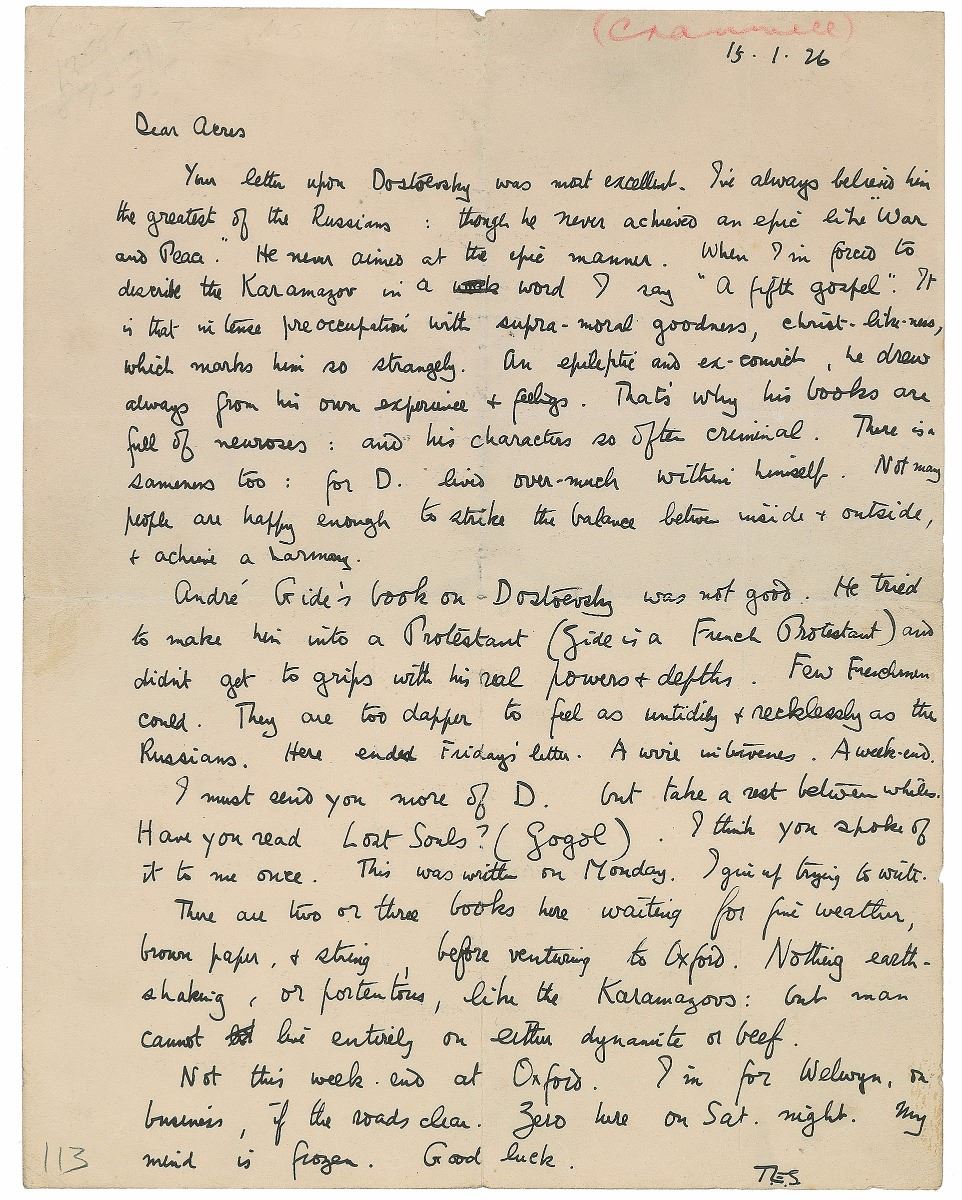 (Cranwell)
15 . 1 . 26
Dear Acres
Your letter upon Dostoevsky was most excellent. I've always believed him
the greatest of the Russians : though he never achieved an epic like "War
and Peace." He never aimed at the epic manner. When I'm forced to
describe the Karamazov in a word I say "A fifth gospel". It
is that intense preoccupation with supra-moral goodness, christ-like-ness,
which marks him so strangely. An epileptic and ex-convict, he drew
always from his own experience & feelings. That's why his books are
full of neuroses : and his characters so often criminal. There is a
sameness too : for D. lived over-much within himself. Not many
people are happy enough to strike the balance between inside & outside,
& achieve a harmony.
André Gide's book on Dostoevsky was not good. He tried
to make him into a Protestant (Gide is a French Protestant) and
didn't get to grips with his real powers & depths. Few Frenchmen
could. They are too dapper to feel as untidily & recklessly as the
Russians. Here ended Friday's letter. A wire intervenes. A week-end.
I must send you more of D. but take a rest between whiles.
Have you read Lost Souls? (Gogol). I think you spoke of
it to me once. This was written on Monday. I give up trying to write.
There are two or three books here waiting for fine weather,
brown paper, & string, before venturing to Oxford. Nothing earth-
shaking, or portentous, like the Karamazovs: but man
cannot live entirely on either dynamite or beef.
Not this week-end at Oxford. I'm for Welwyn, on
business, if the roads clear. Zero here on Sat. night. My
mind is frozen. Good luck.
T.E.S
113